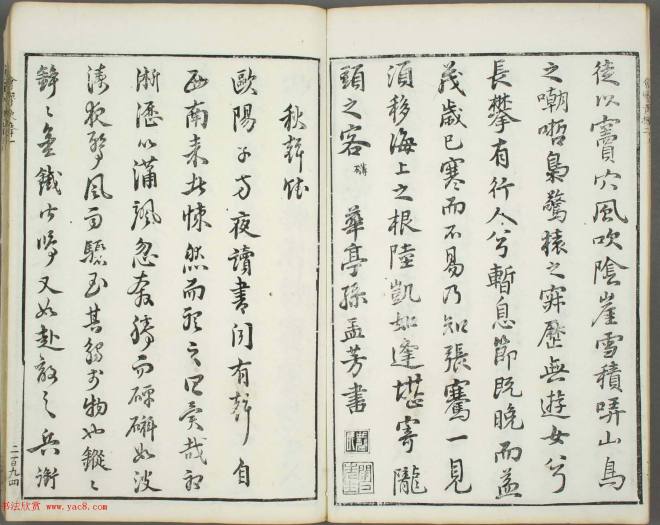 徒以竇穴風吹陰崖雪積哢山鳥
之嘲哳梟驚猿之寂歷無遊女兮
長攀有行人兮暫息節既晚而益
茂歲已寒而不易乃知張騫一見
須移海上之根陸凱如逢堪寄隴
頭之客 華亭孫孟芳書
秋聲賦
歐陽子方夜讀書聞有聲自
西南來者悚然而聽之曰異哉初
淅瀝以蕭颯忽奔騰而砰湃如波
濤夜驚風雨驟至其觸於物也鏦〻
錚〻金鐵皆鳴又如赴敵之兵銜
二百九四
书法欣赏 www.yac8.com